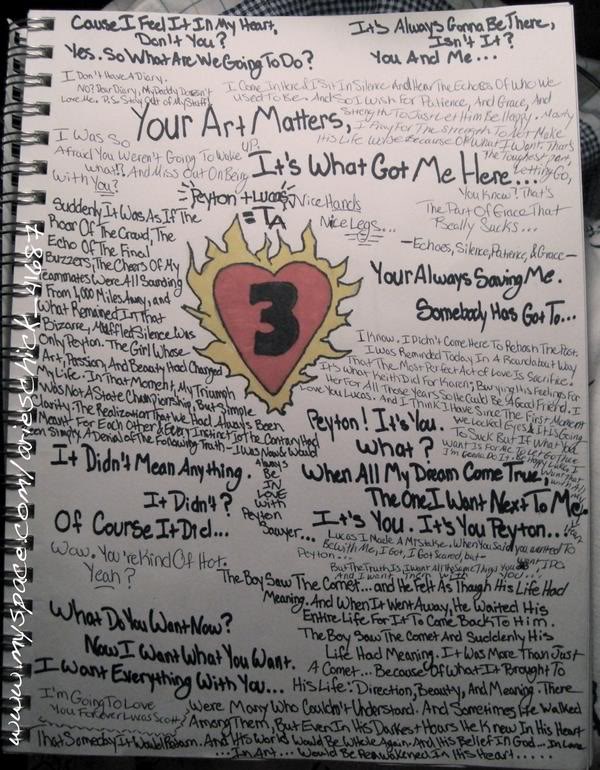 Cause I Feel It In My Heart,
Don't You?
Yes. So What Are We Going To Do?
It's Always Gonna Be There,
Isn't It?
You And Me...
I Don't Have A Diary.
No? Dear Diary, My Daddy Doesn't
Love Me. P.S. Stay Out of My Stuff!
I Come In Here & I Sit In Silence And Hear The Echoes Of Who We
Used To Be. And So I Wish For Patience, And Grace, And
Strength To Just Let Him Be Happy. Mostly
I Pray For The Strength To Not Make
His Life Worse Because Of What I Want. That's
The Toughest part,
Letting Go,
You Know? That's
The Part Of Grace That
Really Sucks...
-Echoes, Silence, Patience, & Grace-
Your Art Matters,
It's What Got Me Here...
I Was So
Afraid You Weren't Going To Wake
UP.
What!? And Miss Out On Being
With You?
Peyton + Lucas
= TA
Nice Hands
Nice Legs...
Suddenly It Was As If The
Roar Of The Crowd, The
Echo Of The Final
Buzzers, The Cheers Of My
Teammates Were All Sounding
From 1,000 Miles Away, and
What Remained In That
Bizarre, Muffled Silence Was
Only Peyton. The Girl Whose
Art, Passion, And Beauty Had Changed
My Life. In That Moment, My Triumph
Was Not A State Championship, But Simple
Clarity. The Realization That We Had Always Been
Meant For Each Other & Every Instinct To the Contrary Had
Been Simply A Denial of The Following Truth - I Was Now & Would
Always
Be
IN
LOVE
With
Peyton
Sawyer...
3
Your Always Saving Me.
Somebody Has Got To...
I Know. I Didn't Come Here To Rehash The Past.
I Was Reminded Today In A Roundabout Way
That The Most Perfect Act of Love Is Sacrifice.
It's What Keith Did For Karen; Burying His Feelings For
Her For All Those Years So He Could Be A Good Friend. I
Love You Lucas. And I Think I Have Since The First Moment
We Locked Eyes & It Is Going
To Suck But If What You
Want Is For Me To Let Go Then
I'm Gonna Do It. Be Happy Luke. I
Want That
Peyton! It's You.
What?
When All My Dream Come True,
The One I Want Next To Me.
It's You. It's You Peyton..
It Didn't Mean Anything.
It Didn't?
Of Course It Did...
Wow. You're Kind Of Hot.
Yeah?
Lucas I Made A Mistake. When You Said you wanted To
Be With Me, I Got, I Got Scared, but
Peyton...
But The Truth Is, I want All the Same Things You Do
And I want Them With You...
The Boy Saw The Comet... and He Felt As Though His Life Had
Meaning. And When It Went Away, He Waited His
Entire Life For It To Come Back To Him.
The Boy Saw The Comet And Suddenly His
Life Had Meaning. It Was More Than Just
A Comet... Because Of What It Brought To
His Life: Direction, Beauty, And Meaning. There
Were Many Who Couldn't Understand. And Sometimes He Walked
Among Them, But Even In His Darkest Hours He Knew In His Heart
That Someday It Would Return. And His World Would Be Whole Again. And His Belief In God... In Love
...In Art... Would Be Reawakened In His Heart.....
What Do You Want Now?
Now I Want What You Want.
I Want Everything With You...
I'm Going To Love
You Forever Lucas Scott